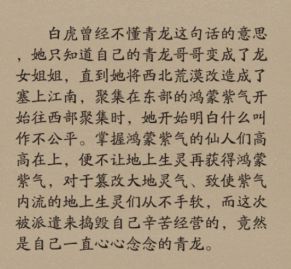 白虎曾经不懂青龙这句话的意思
，她只知道自己的青龙哥哥变成了龙
女姐姐，直到她将西北荒漠改造成了
塞上江南，聚集在东部的鸿蒙紫气开
始往西部聚集时，她开始明白什么叫
作不公平。掌握鸿蒙紫气的仙人们高
高在上，便不让地上生灵再获得鸿蒙
紫气，对于篡改大地灵气、致使紫气
内流的地上生灵们从不手软，而这次
被派遣来捣毁自己辛苦经营的，竟然
是自己一直心心念念的青龙。